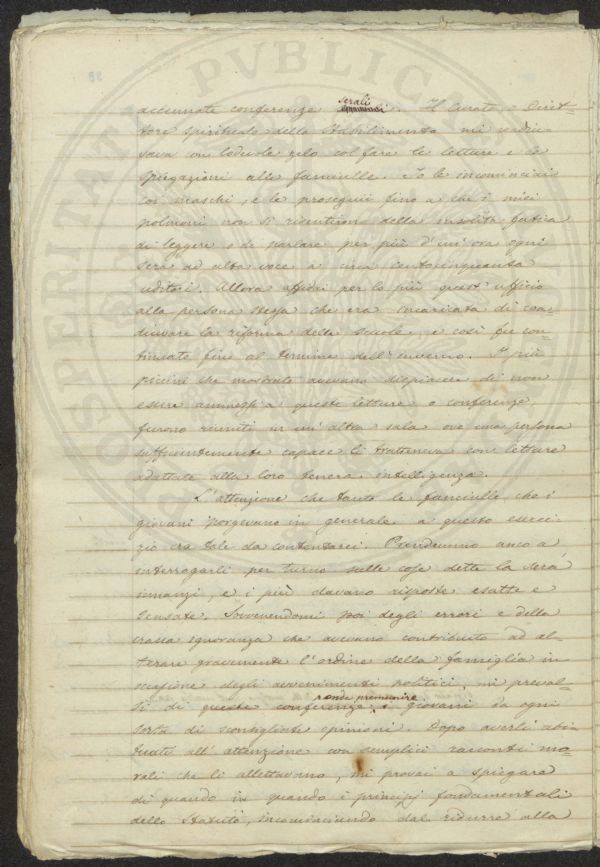 accennate conferenze serali. Il Curato, o Diret-
tore spirituale dello stabilimento mi
con lodevole zelo col fare le letture e le
spiegazioni alle fanciulle. Io le incominciai
coi maschi, e le proseguii fino a che i miei
polmoni non si risentirono della insolita fatica
di leggere o di parlare per più d'un'ora ogni
sera ad alta voce a circa centocinquanta
uditori. Allora affidai per lo più quest'ufficio
alla persona stessa che era incaricata di coa-
diuvare la riforma delle scuole, e così fu con-
tinuato fino al termine dell'inverno. I più
piccini che mostrato avevano dispiacere di non
essere ammessi a queste letture o conferenze,
furono riuniti in un'altra sala ove una persona
sufficientemente capace li tratteneva con letture
adattate alla loro tenera intelligenza.
L'attenzione che tanto le fanciulle, che i
giovani porgevano in generale a questo eserci-
zio era tale da contentarci. Prendemmo anco a
interrogarli per turno sulle cose dette la sera
innanzi, e i più davano risposte esatte e
sensate. Sovvenendomi poi degli errori e della
crassa ignoranza che avevano contribuito ad al-
terare gravemente l'ordine della famiglia in
occasione degli avvenimenti politici, mi preval-
si di queste conferenze onde premunire i giovani da ogni
sorta di sconsigliate opinioni. Dopo averli abi-
tuati all'attenzione con semplici racconti mo-
rali che li allettavano, mi provai a spiegare
di quando in quando i principj fondamentali
dello Statuto, incominciando dal ridurre alla